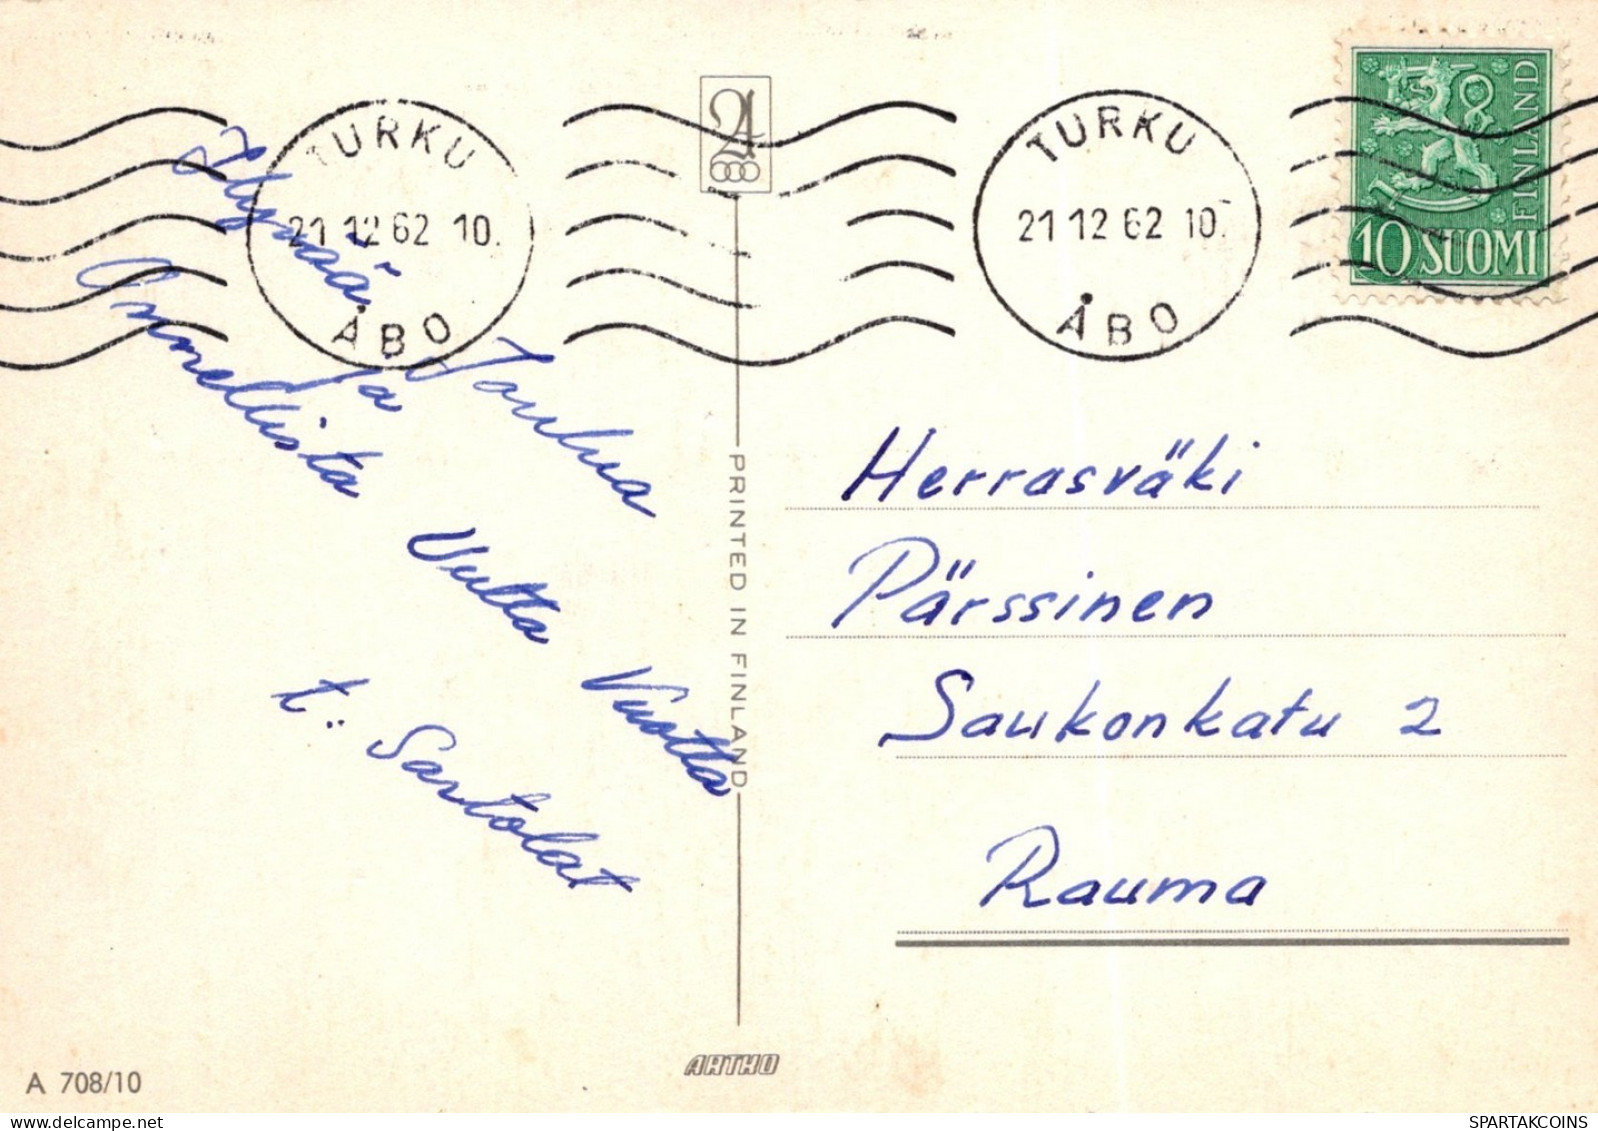 TURKU
21 12 62 10.
ÅBO
TURKU
21 12 62 10.
ÅBO
FINLAND
10 SUOMI
Hyvää Joulua
ja
Onnellista Uutta Vuotta
t: Santolat
PRINTED IN FINLAND
Herrasväki
Pärssinen
Saukonkatu 2
Rauma
ARTKO
A 708/10
SPARTAKCOINS